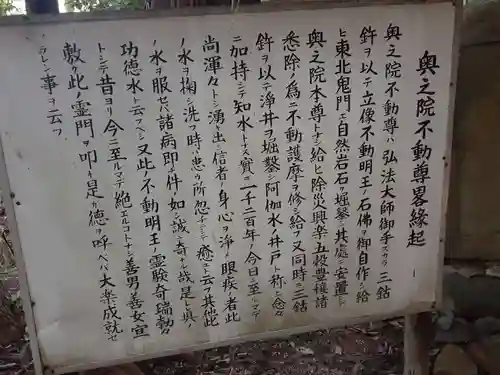 奥之院不動尊畧縁起
奥之院不動尊ハ弘法大師御手ズカラ三鈷
鈝ヲ以テ立像不動明王ノ石佛ヲ御自作シ給
ヒ東北鬼門ニ自然岩石ヲ堀鑿シ其處ニ安置シ
奥之院本尊トナシ給ヒ除災興楽五投豊穣諸
悉除ノ為ニ不動護摩ヲ修シ給フ又同時ニ三鈷
鈝ヲ以テ浄井ヲ堀鑿シ阿伽水ノ井戸ト称シ念々
ニ加持シテ知水トナス實ニ一千二百年ノ今日ニ至ル
尚渾々トシテ湧キ出ニ信者ノ身心ヲ浄メ眼疾者此
ノ水ヲ掬シ洗フ時ハ患フ所忽チニシテ癒ユト云フ其他此
ノ水ヲ服セバ諸病即チ件ノ如シ誠ニ奇ナル哉是レ真ノ
功徳水ト云フベシ又此ノ不動明王ノ霊験奇瑞勤々
トシテ昔ヨリ今ニ至ルマデ絶エルコトナシ善男善女宜シ
敷ク此ノ霊門ヲ叩キ是カ徳ヲ呼ベバ大楽成就セ
ラレン事ヲ云フ